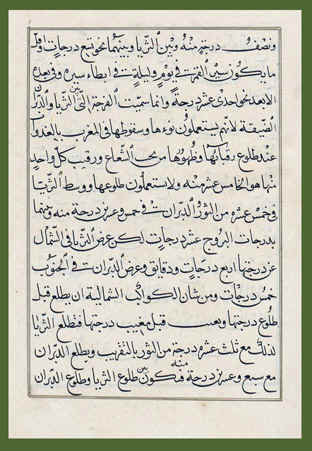 ونصف درجة منه وبين الثريا وبينهما نحو تسع درجات واقل
ما يكون سير القمر في يوم وليلة في ابطاء سيره وفي بعده
الابعد نحو احدى عشر درجة وانما سميت الفرجة التي بين الثريا والدبران
الضيقة لانهم يستعملون نوءها وسقوطها في المغرب بالغدوات
عند طلوع رقبائها وظهورها من تحت الشعاع ورقيب كل واحد
منها هو الخامس عشر منه ولا يستعملون طلوعها ووسط الثريا
في خمس عشره من الثور والدبران في خمس وعشرين درجة منه وبينهما
بدرجات البروج عشر درجات لكن عرض الثريا في الشمال
عن درجتها اربع درجات ودقايق وعرض الدبران في الجنوب
خمس درجات ومن شان الكواكب الشمالية ان يطلع قبل
طلوع درجتها ويغيب قبل مغيب درجتها فتطلع الثريا
لذلك مع ثلث عشره درجة من الثور بالتقريب ويطلع الدبران
مع سبع وعشرين درجة منه فتكون بين طلوع الثريا وطلوع الدبران